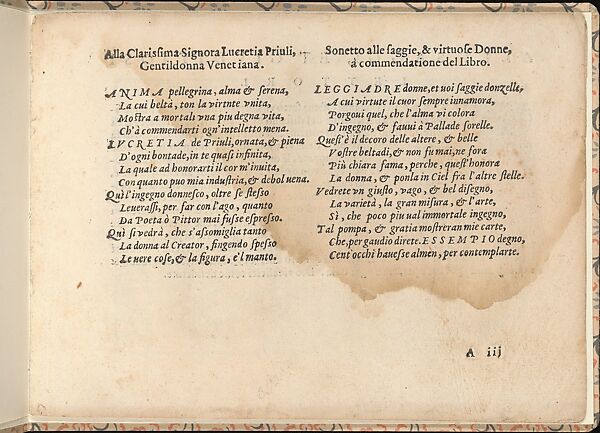 Alla Clarissima Signora Lucretia Priuli,
Gentildonna Venetiana.
ANIMA pellegrina, alma & serena,
La cui beltà, ton la virtute vnita,
Mostra a mortali vna piu degna vita,
Ch'à commendarti ogn'intelletto mena.
LVCRETIA de Priuli, ornata, & piena
D'ogni bontade, in te quasi infinita,
La quale ad honorarti il cor m'inuita,
Con quanto puo mia industria, & debol uena.
Quì l'ingegno donnesco, oltre se stesso
Leuerassi, per far con l'ago, quanto
Da Poeta ò Pittor mai fusse espresso.
Quì si vedrà, che s'assomiglia tanto
La donna al Creator, fingendo spesso
Le vere cose, & la figura, e'l manto.
Sonetto alle saggie, & virtuose Donne,
à commendatione del Libro.
LEGGIADRE donne, et uoi saggie donzelle,
A cui virtute il cuor sempre innamora,
Porgoui quel, che l'alma vi colora
D'ingegno, & fauui à Pallade sorelle.
Quest'è il decoro delle altere, & belle
Vostre beltadi, & non fu mai, ne fora
Più chiara fama, perche, quest'honora
La donna, & ponla in Ciel fra l'altre stelle.
Vedrete vn giusto, vago, & bel disegno,
La varietà, la gran misura, & l'arte,
Sì, che poco piu ual immortale ingegno,
Tal pompa, & gratia mostreran mie carte,
Che, per gaudio direte. ESSEMPIO degno,
Cent'occhi hauesse almen, per contemplarte.
A iij